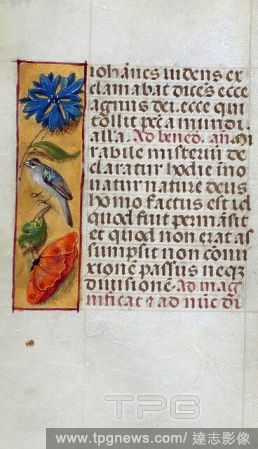 iohanes uidens ex
clamabat dices ecce
agnus dei. ecce qui
tollit pccã mundi
alla. Ad bened. an.
rabile misterium de
claratur hodie ino
natur nature deus
homo factus est id
quod fuit permãsit
et quod non erat as
sumpsit non comi
xtionẽ passus neqz
diuisionẽ. Ad mag
nificat ad nũc di
TPG
www.tpgnews.com/ 達志影像